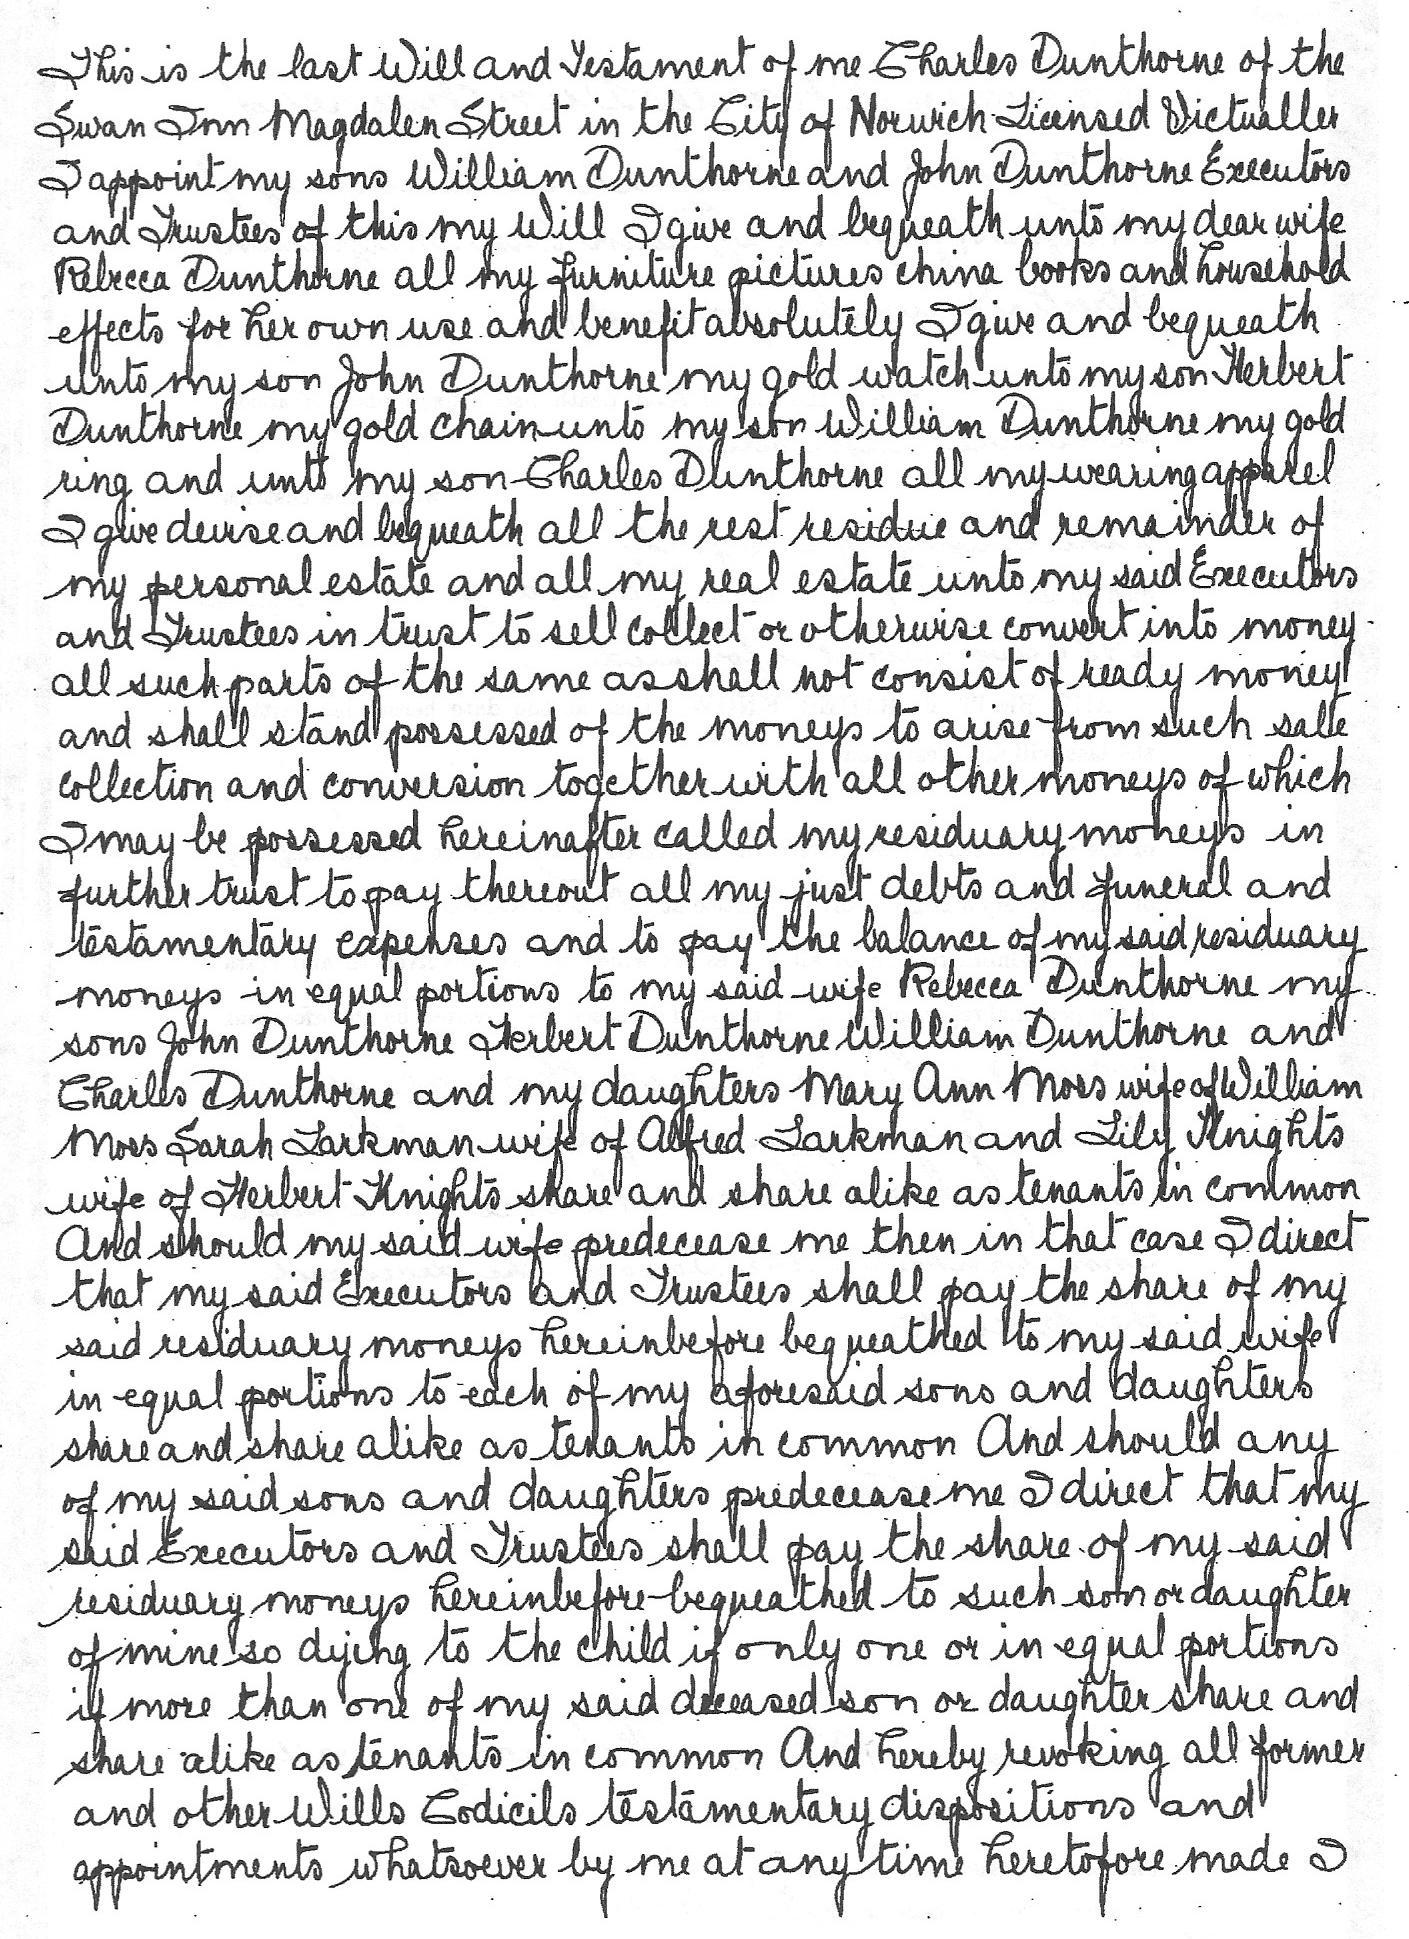 This is the last Will and Testament of me Charles Dunthorne of the
Swan Inn Magdalen Street in the City of Norwich Licensed Victualler
I appoint my sons William Dunthorne and John Dunthorne Executors
and Trustees of this my Will I give and bequeath unto my dear wife
Rebecca Dunthorne all my furniture pictures china books and household
effects for her own use and benefit absolutely I give and bequeath
unto my son John Dunthorne my gold watch unto my son Herbert
Dunthorne my gold chain unto my son William Dunthorne my gold
ring and unto my son Charles Dunthorne all my wearing apparel
I give devise and bequeath all the rest residue and remainder of
my personal estate and all my real estate unto my said Executors
and Trustees in trust to sell collect or otherwise convert into money
all such parts of the same as shall not consist of ready money
and shall stand possessed of the moneys to arise from such sale
collection and conversion together with all other moneys of which
I may be possessed hereinafter called my residuary moneys in
further trust to pay thereout all my just debts and funeral and
testamentary expenses and to pay the balance of my said residuary
moneys in equal portions to my said wife Rebecca Dunthorne my
sons John Dunthorne Herbert Dunthorne William Dunthorne and
Charles Dunthorne and my daughters Mary Ann Moss wife of William
Moss Sarah Larkman wife of Alfred Larkman and Lily Knights
wife of Herbert Knights share and share alike as tenants in common
And should my said wife predecease me then in that case I direct
that my said Executors and Trustees shall pay the share of my
said residuary moneys hereinbefore bequeathed to my said wife
in equal portions to each of my aforesaid sons and daughters
share and share alike as tenants in common And should any
of my said sons and daughters predecease me I direct that my
said Executors and Trustees shall pay the share of my said
residuary moneys hereinbefore bequeathed to such son or daughter
of mine so dying to the child if only one or in equal portions
if more than one of my said deceased son or daughter share and
share alike as tenants in common And hereby revoking all former
and other Wills Codicils testamentary dispositions and
appointments whatsoever by me at any time heretofore made I